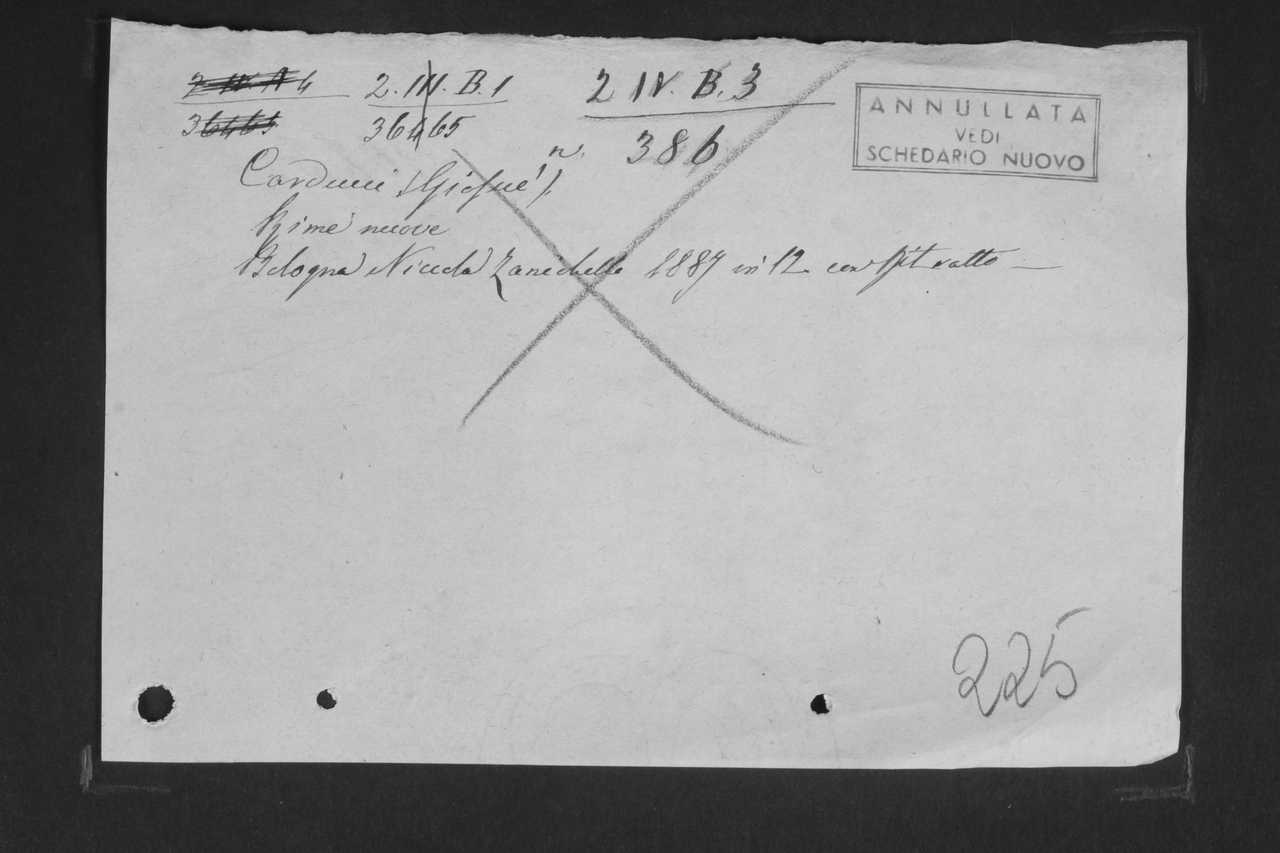 2 IV A 4 2. III. B. 1 2 IV. B. 3
36465 36465 n. 386
ANNULLATA
VEDI
SCHEDARIO NUOVO
Carducci (Giosuè)
Rime nuove
Bologna Nicola Zanichelli 1887 in 12 con Ritratto —
225